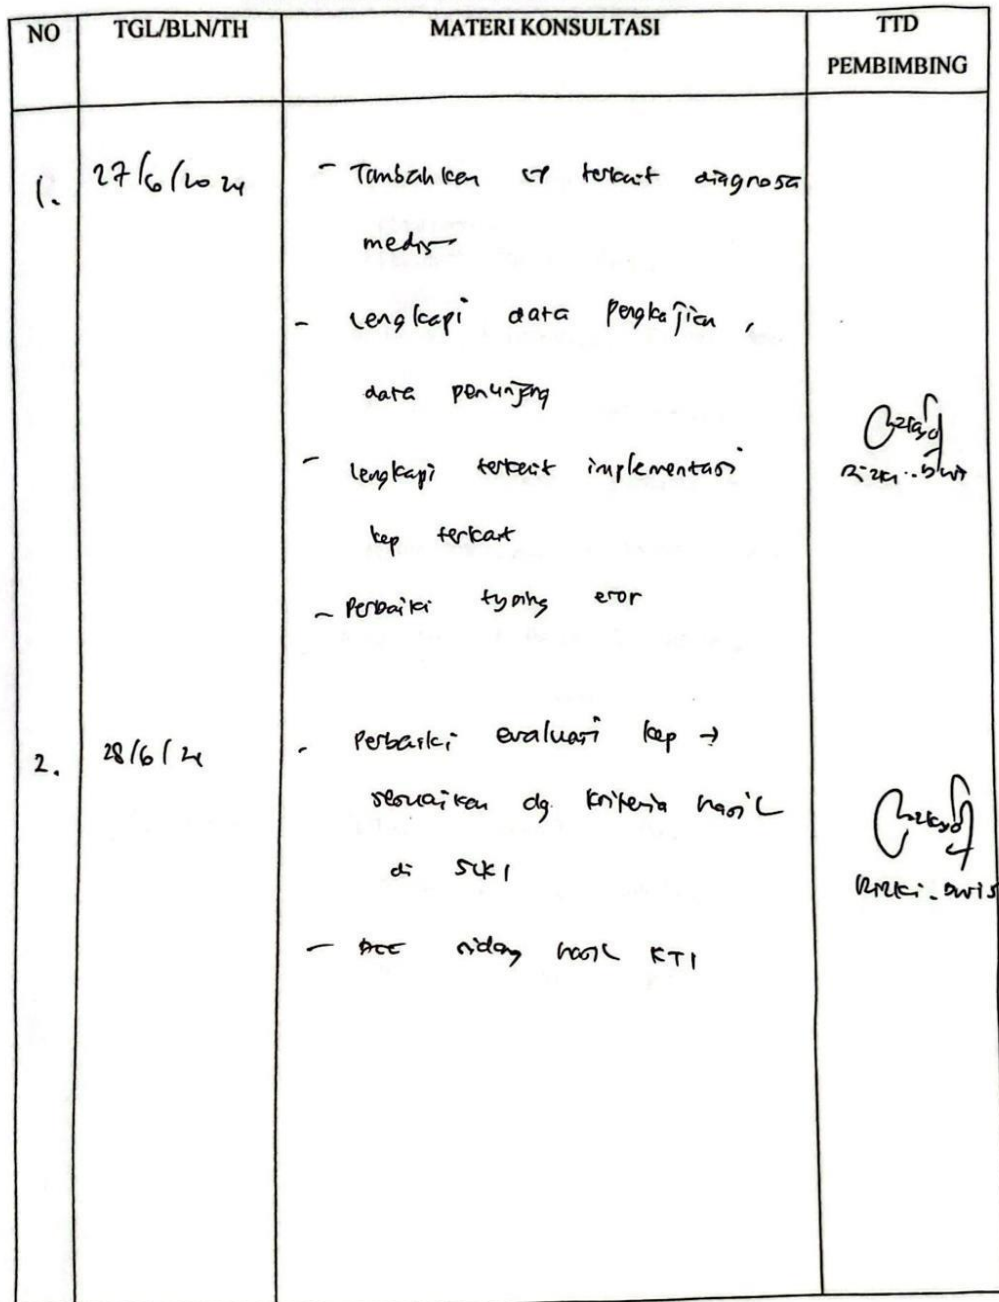 NO TGL/BLN/TH MATERI KONSULTASI TTD
PEMBIMBING
1. 27/6/2024 - Tambahkan terkait diagnosa
medis
- Lengkapi data pengkajian,
data penunjang
- Lengkapi terkait implementasi
kep terkait
Rizki
- Perbaiki typing eror
2. 28/6/24 - Perbaiki evaluasi kep →
sesuaikan dg. kriteria hasil
di
Rizki
- ACC sidang hasil KTI